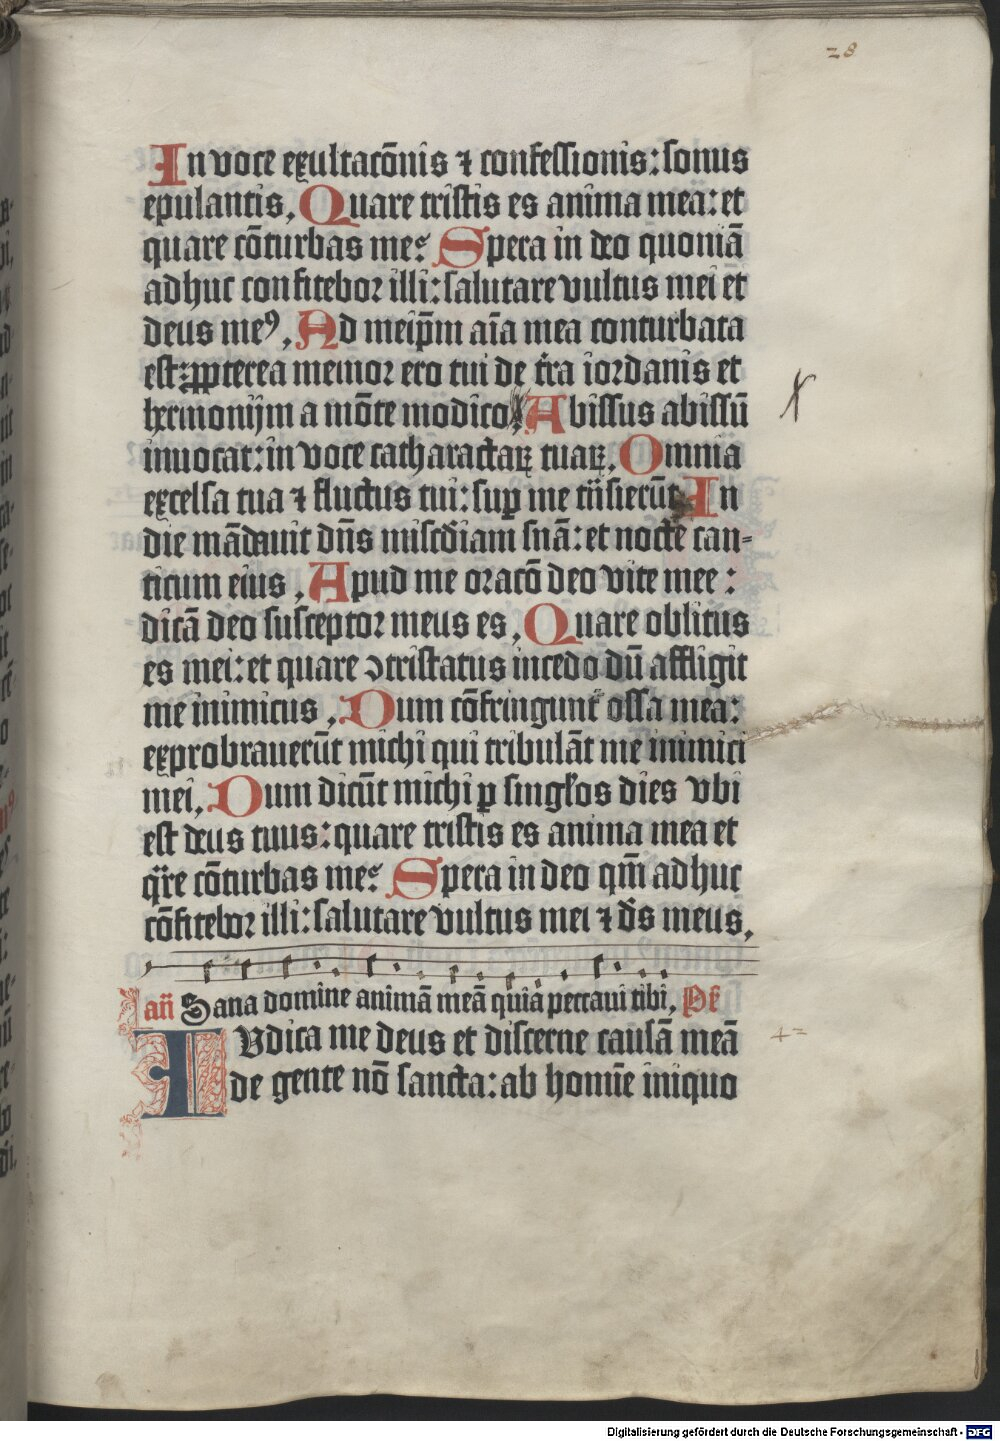 28
In voce exultacōnis ⁊ confessionis: sonus
epulantis, Quare tristis es anima mea: et
quare cōturbas me? Spera in deo quoniā
adhuc confitebor illi: salutare vultus mei et
deus meꝰ, Ad meip̄m aīa mea conturbata
est: ꝓpterea memor ero tui de t̄ra iordanis et
hermonijm a mōte modico, Abissus abissū
inuocat: in voce catharactaꝝ tuaꝝ, Omnia
excelsa tua ⁊ fluctus tui: sup̱ me trāsierūt In
die mādauit dn̄s mis̄cdiam suā: et nocte can-
ticum eius, Apud me oracō deo vite mee:
dicā deo susceptor meus es, Quare oblitus
es mei: et quare ↄtristatus incedo dū affligit
me inimicus, Dum cōfringunt᷑ ossa mea:
exprobrauerūt michi qui tribulāt me inimici
mei, Dum dicūt michi ꝑ singłos dies vbi
est deus tuus: quare tristis es anima mea et
q̄re cōturbas me? Spera in deo qm̄ adhuc
cōfitebor illi: salutare vultus mei ⁊ ds̄ meus,
an̄ Sana domine animā meā quia peccaui tibi, Ps̄
IVdica me deus et discerne causā meā
de gente nō sancta: ab homīe iniquo
42
Digitalisierung gefördert durch die Deutsche Forschungsgemeinschaft - DFG